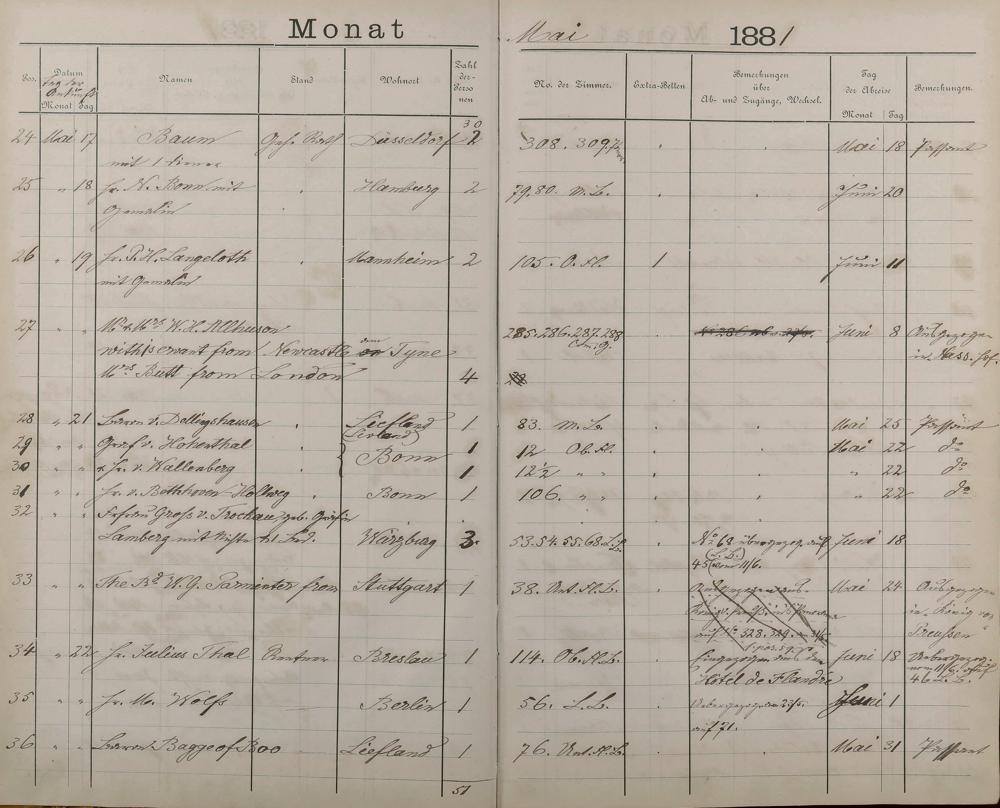 Monat Mai 1881
Datum Tag der Ankunft Namen Stand Wohnort Zahl der Personen No. der Zimmer. Extra-Betten Bemerkungen über Ab- und Zugänge, Wechsel. Tag der Abreise Bemerkungen.
Monat Tag. Monat Tag
30
24 Mai 17 Baum Geh. Rath Düsseldorf 2 308. 309. Mai 18 Passant
mit 1 Diener
25 " 18 Hr. N. Bonn mit Hamburg 2 79.80. M.B. Juni 20
Gemalin
26 " 19 Hr. P. H. Langeloth Mannheim 2 105. O.H. 1 Juni 11
mit Gemalin
27 " " Mr & Mrs W. H. Allhusen 285.286.287.288 Juni 8 Ausgezogen
with 1 servant from Newcastle on Tyne in Nass. Hof.
Mrs Butt from London 4
28 " 21 Baron v. Dellingshausen Liefland 1 83. M.B. Mai 25 Passant
(Livland)
29 " " Graf v. Hohenthal Bonn 1 12 Ob.H. Mai 22 do
30 " " & Hr. v. Wallenberg 1 12½ " " " 22 do
31 " " Hr. v. Bethhoven-Hollweg Bonn 1 106. " " " 22 do
32 " " Freifrau Gross v. Trockau, geb. Gräfin
Lamberg mit Nichte & 1 Bed. Würzburg 3. 53.54.55.68. No 68 übergezog. auf Juni 18
45 (L.B.) vom 11/6.
33 " " The Rd W. G. Parminter from Stuttgart 1 38. Unt.H.B. Ausgezogen Mai 24 Ausgezogen
in König von
auf No 328.329. Preussen
34 " 22 Hr. Julius Thal Rentner Breslau 1 114. Ob.H.B. Eingezogen aus dem Juni 18 Uebergezog.
Hôtel de Flandre vom 11/6. auf
46 L.B.
35 " " Hr. M. Wolfs Berlin 1 56. L.B. Uebergezogen 23/5. Juni 1
auf 71.
36 " " Baron Bagge of Boo Liefland 1 76. Unt.H.B. Mai 31 Passant
51